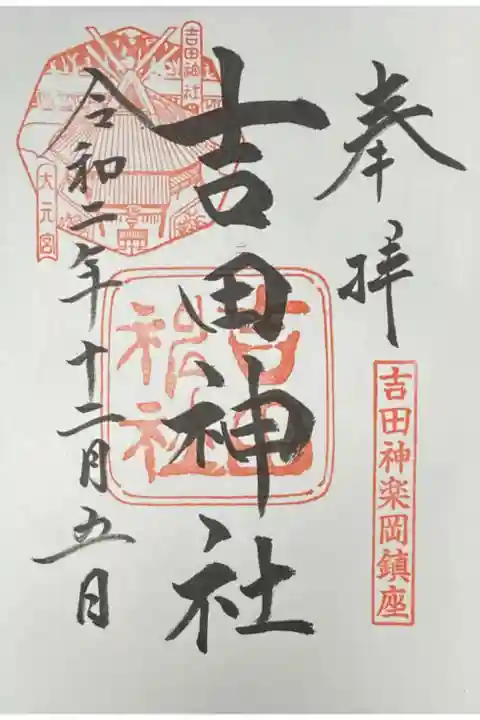 奉拝
吉田神楽岡鎮座
吉田神社
吉田神社
吉田神社
大元宮
令和二年十二月五日